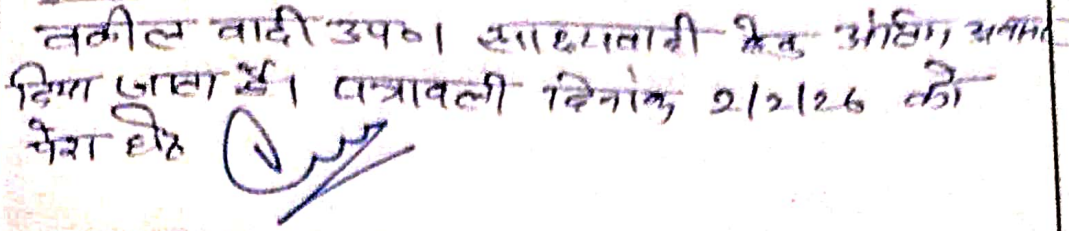 वकील वादी उप०। साक्ष्यवादी हेतु अंतिम अवसर
दिया जाता है। पत्रावली दिनांक 2/2/26 को
पेश होवे